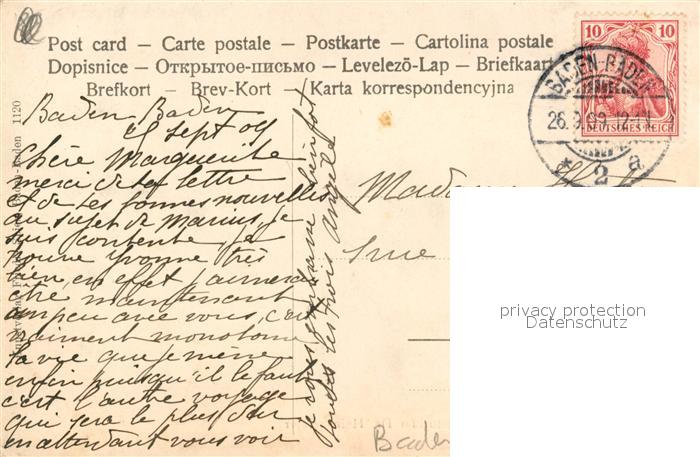 Post card – Carte postale – Postkarte – Cartolina postale
Dopisnice – Открытое-письмо – Levelezö-Lap – Briefkaart
Brefkort – Brev-Kort – Karta korrespondencyjna
10 10
DEUTSCHES REICH
BADEN-BADEN
26.9.09.12-1
* 2 a
1120
Baden Baden
Sept 09
Chère Marguerite
merci de ta lettre
et de tes bonnes nouvelles
au sujet de Marius, je
suis contente, je
trouve Yvonne très
bien, en effet j'aimerai
être maintenant
un peu avec vous, c'est
vraiment monotone
la vie que je mène
enfin puisqu'il le faut
c'est l'autre voyage
qui sera le plus dur
en attendant vous voir
je vous embrasse bien fort
toutes les trois Angèle
Madame
rue
Baden
privacy protection
Datenschutz